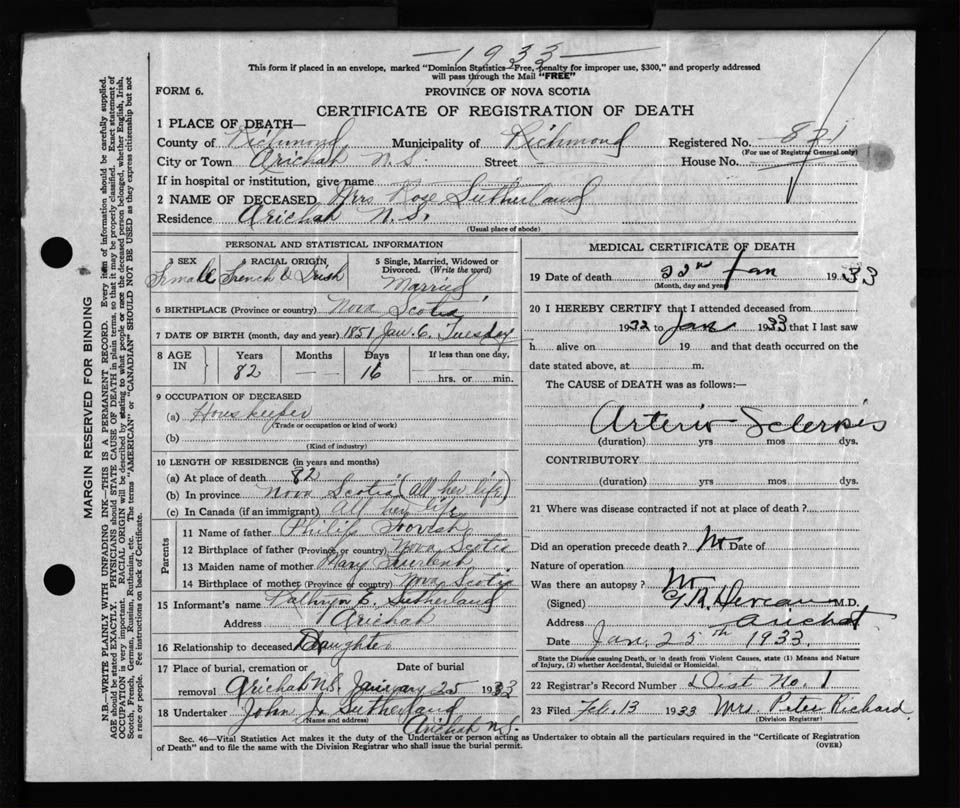 1933
This form if placed in an envelope, marked "Dominion Statistics—Free, penalty for improper use, $300," and properly addressed
will pass through the Mail "FREE"
FORM 6.
PROVINCE OF NOVA SCOTIA
CERTIFICATE OF REGISTRATION OF DEATH
1 PLACE OF DEATH—
County of Richmond Municipality of Richmond Registered No. 871
(For use of Registrar General only)
City or Town Arichat N.S. Street House No.
If in hospital or institution, give name
2 NAME OF DECEASED Mrs Roze Sutherland
Residence Arichat N.S.
(Usual place of abode)
PERSONAL AND STATISTICAL INFORMATION
3 SEX RACIAL ORIGIN 5 Single, Married, Widowed or Divorced. (Write the word)
Female French & Irish Married
6 BIRTHPLACE (Province or country) Nova Scotia
7 DATE OF BIRTH (month, day and year) 1851 Jan. 6. Tuesday
8 AGE IN Years Months Days If less than one day,
82 — 16 hrs. or min.
9 OCCUPATION OF DECEASED
(a) Houskeeper
(Trade or occupation or kind of work)
(b)
(Kind of industry)
10 LENGTH OF RESIDENCE (in years and months)
(a) At place of death 82
(b) In province Nova Scotia (all her life)
(c) In Canada (if an immigrant) all her life
Parents
11 Name of father Philip
12 Birthplace of father (Province or country) Nova Scotia
13 Maiden name of mother Mary
14 Birthplace of mother (Province or country) Nova Scotia
15 Informant's name Kathryn E. Sutherland
Address Arichat
16 Relationship to deceased Daughter
17 Place of burial, cremation or Date of burial
removal Arichat N.S. January 25 1933
18 Undertaker John J. Sutherland
(Name and address)
Arichat N.S.
MEDICAL CERTIFICATE OF DEATH
19 Date of death 22nd Jan 1933
(Month, day and year)
20 I HEREBY CERTIFY that I attended deceased from
1932 to Jan 1933 that I last saw
h alive on 19 and that death occurred on the
date stated above, at m.
The CAUSE of DEATH was as follows:—
Arterio-Sclerosis
(duration) yrs mos dys.
CONTRIBUTORY
(duration) yrs mos dys.
21 Where was disease contracted if not at place of death?
Did an operation precede death? No Date of
Nature of operation
Was there an autopsy? No
(Signed) M.D.
Address Arichat
Date Jan. 25th 1933.
State the Disease causing Death, or in death from Violent Causes, state (1) Means and Nature
of Injury, (2) whether Accidental, Suicidal or Homicidal.
22 Registrar's Record Number Dist No. 1
23 Filed Feb. 13 1933 Mrs. Peter Richard.
(Division Registrar)
Sec. 46—Vital Statistics Act makes it the duty of the Undertaker or person acting as Undertaker to obtain all the particulars required in the "Certificate of Registration
of Death" and to file the same with the Division Registrar who shall issue the burial permit.
(OVER)
MARGIN RESERVED FOR BINDING
N.B.—WRITE PLAINLY WITH UNFADING INK—THIS IS A PERMANENT RECORD. Every item of information should be carefully supplied.
AGE should be stated EXACTLY. PHYSICIANS should STATE CAUSE OF DEATH in plain terms, so that it may be properly classified. Exact statement of
OCCUPATION is very important. RACIAL ORIGIN will be described by stating to what people or race the deceased person belonged, whether English, Irish,
Scotch, French, German, Russian, Ruthenian, etc. The terms "AMERICAN" or "CANADIAN" SHOULD NOT BE USED as they express citizenship but not
a race or people. See instructions on back of Certificate.